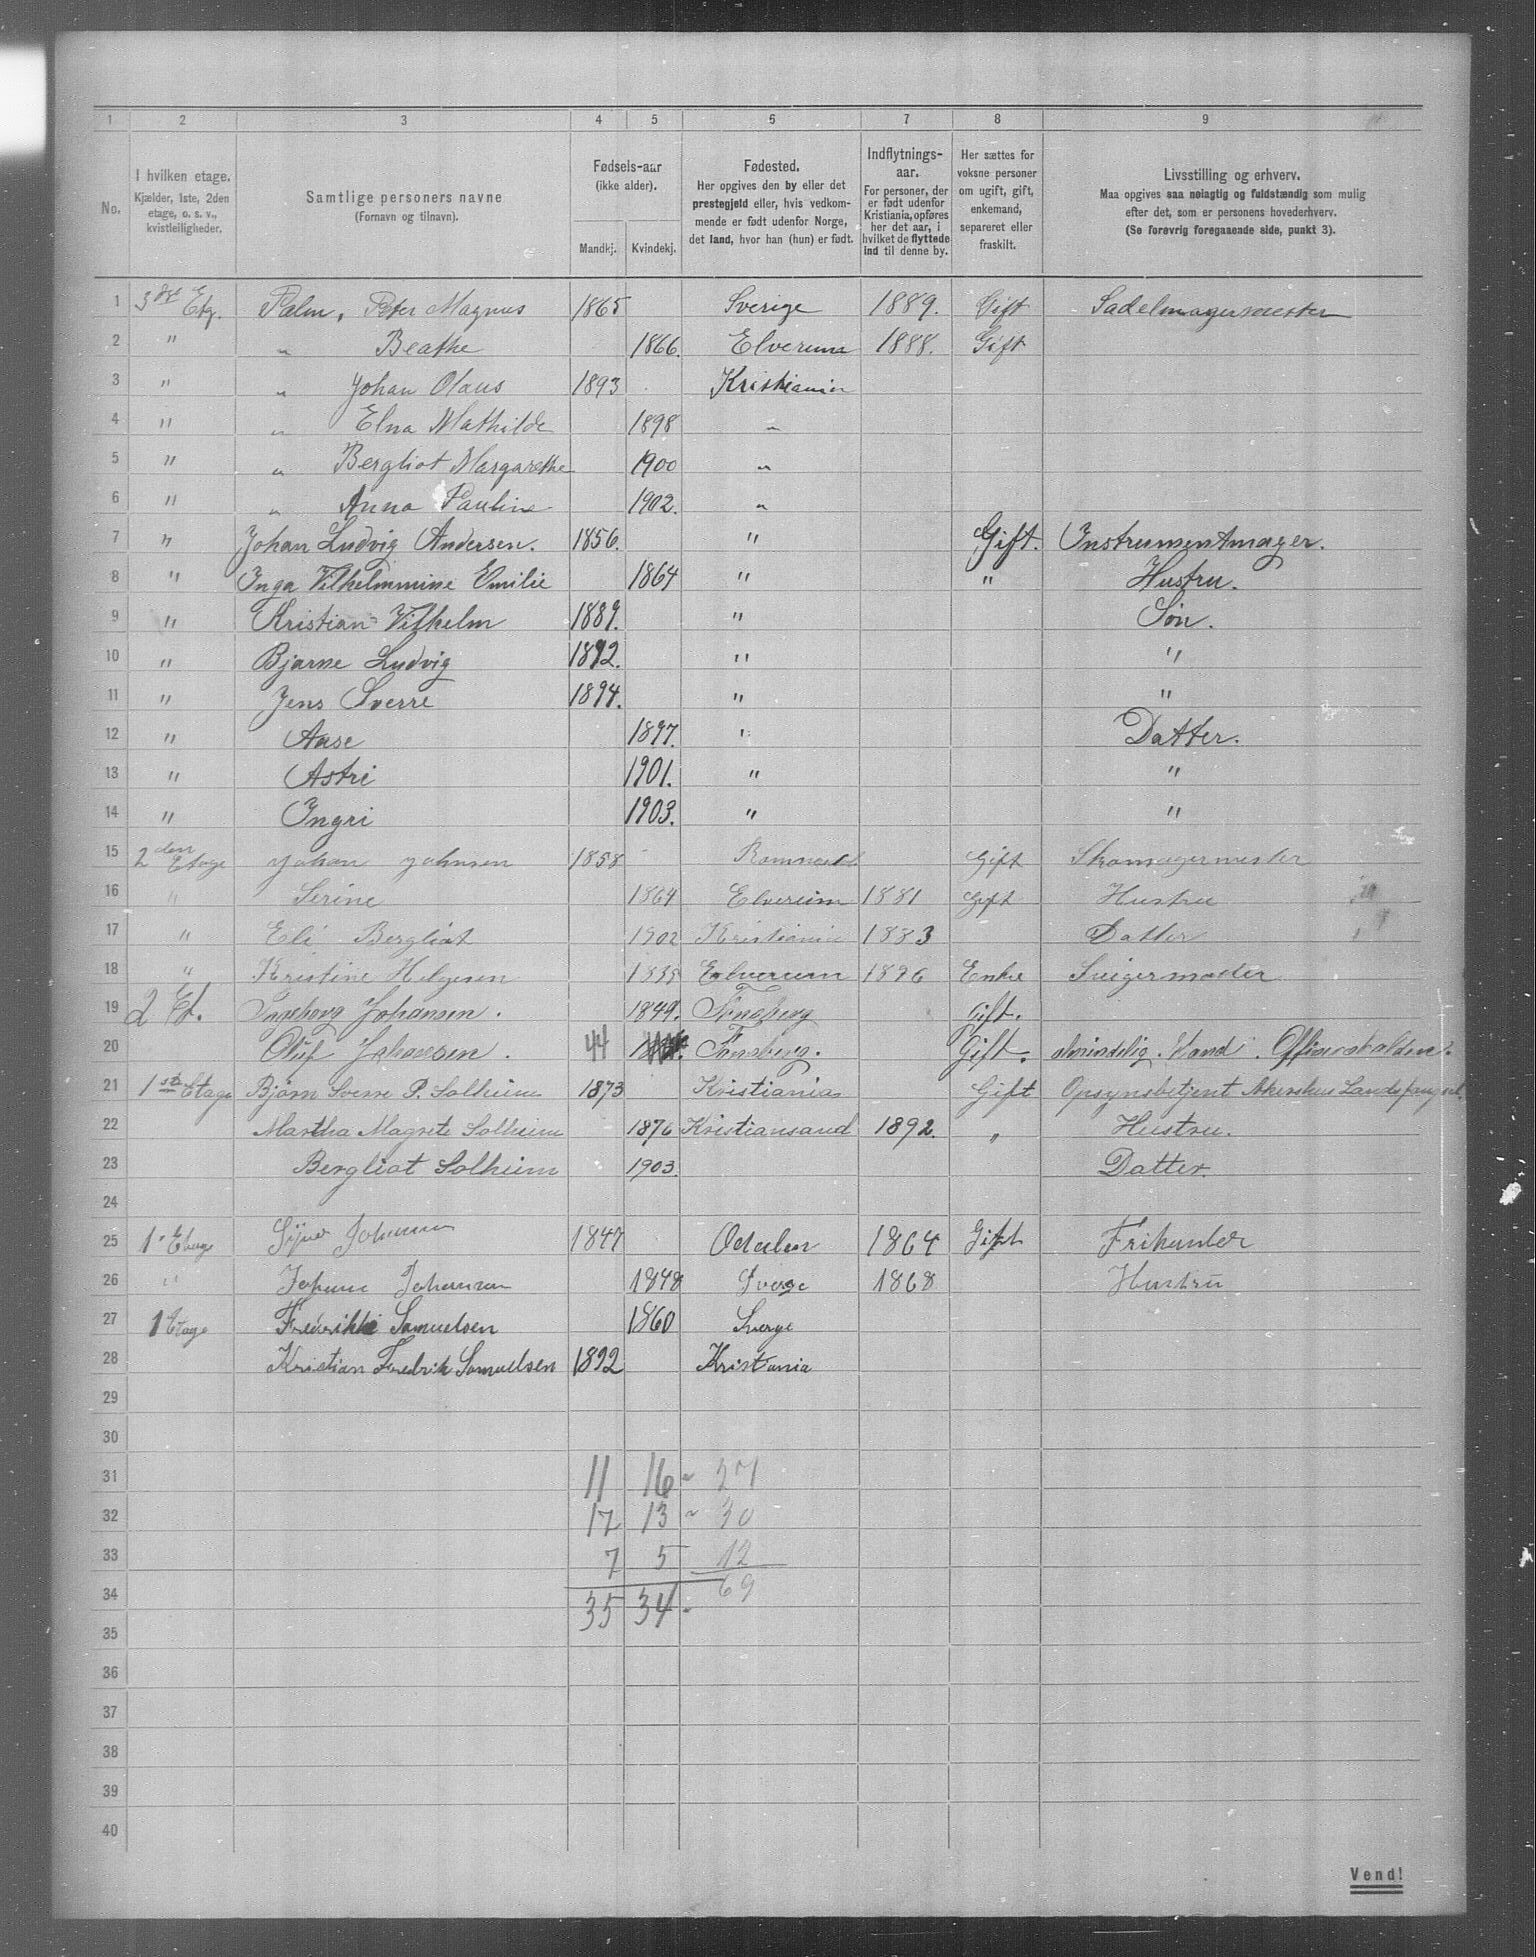 1 2 3 4 5 6 7 8 9
No.
I hvilken etage.
Kjælder, 1ste, 2den
etage, o. s. v.,
kvistleiligheder.
Samtlige personers navne
(Fornavn og tilnavn).
Fødsels-aar
(ikke alder).
Mandkj. Kvindekj.
Fødested.
Her opgives den by eller det
prestegjeld eller, hvis vedkom-
mende er født udenfor Norge,
det land, hvor han (hun) er født.
Indflytnings-
aar.
For personer, der
er født udenfor
Kristiania, opføres
her det aar, i
hvilket de flyttede
ind til denne by.
Her sættes for
voksne personer
om ugift, gift,
enkemand,
separeret eller
fraskilt.
Livsstilling og erhverv.
Maa opgives saa nøiagtig og fuldstændig som mulig
efter det, som er personens hovederhverv.
(Se forøvrig foregaaende side, punkt 3).
1 3die Etg. Palm, Peter Magnus 1865 Sverige 1889. Gift Sadelmagermester
2 " " Beathe 1866. Elverum 1888. Gift
3 " " Johan Olaus 1893 Kristiania
4 " " Elna Mathilde 1898 "
5 " " Bergliot Margarethe 1900 "
6 " " Anna Pauline 1902. "
7 " Johan Ludvig Andersen. 1856. " Gift. Instrumentmager.
8 " Inga Vilhelmmine Emilie 1864 " " Hustru.
9 " Kristian Vilhelm 1889. " Søn.
10 " Bjarne Ludvig 1892. " "
11 " Jens Sverre 1894. " "
12 " Aase 1897. " Datter.
13 " Astri 1901. " "
14 " Ingri 1903. " "
15 2den Etage Johan Johnsen 1858 Gift Skomagermester
16 " Serine 1864 Elverum 1881 Gift Hustru
17 " Eli Bergliot 1902 Kristiania 1883 Datter
18 " Kristine Helgesen Elverum 1896 Enke Svigermoder
19 2 Et. Ingeborg Johansen. 1849. Tønsberg Gift.
20 Oluf Johansen. 44 Tønsberg. Gift. almindelig.
21 1ste Etage Bjørn Sverre P. Solheim 1873 Kristiania Gift Opsynsbetjent Akershus Landsfængsel.
22 Martha Magrete Solheim 1876 Kristiansand 1892. " Hustru.
23 Bergliot Solheim 1903. Datter.
24
25 1. Etage 1847 Odalen 1864 Gift
26 " Johansen 1848 Sverge 1868 Hustru
27 1 Etage Fredrikke Samuelsen 1860 Sverge
28 Kristian Fredrik Samuelsen 1892 Kristania
29
30
31 11 16 - 27
32 17 13 - 30
33 7 5 12
34 35 34 - 69
35
36
37
38
39
40
Vend!